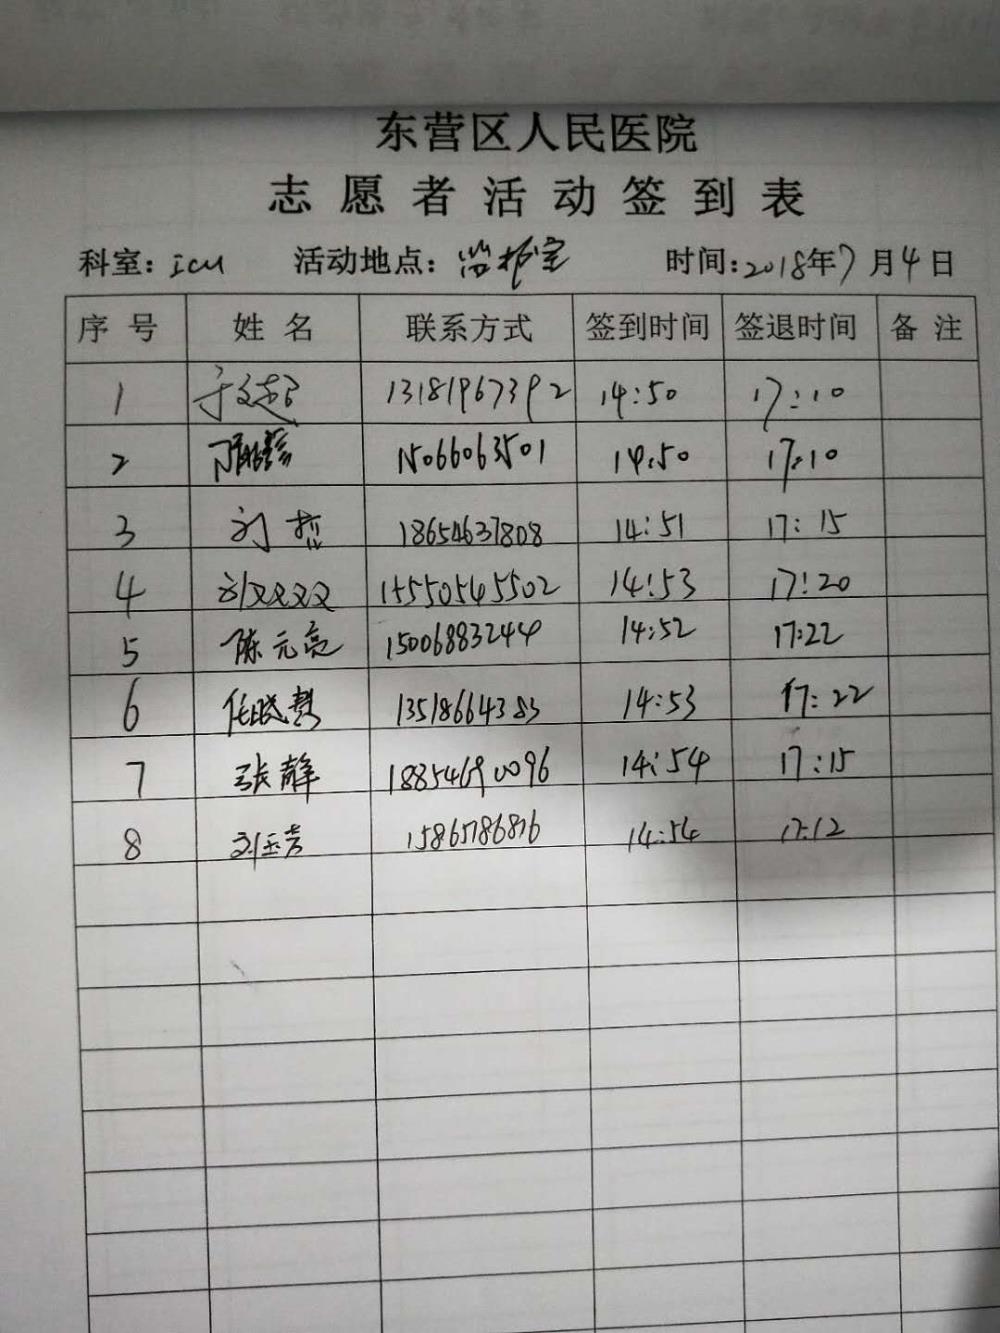 东营区人民医院
志愿者活动签到表
科室：icu 活动地点：监护室 时间：2018年7月4日
序号 姓名 联系方式 签到时间 签退时间 备注
1 13181967392 14:50 17:10
2 15066063501 14:50 17:10
3 刘哲 18654637808 14:51 17:15
4 刘双双 15550545502 14:53 17:20
5 陈元亮 15006883244 14:52 17:22
6 任晓慧 13518664383 14:53 17:22
7 张静 18854690096 14:54 17:15
8 刘玉芳 15865786816 14:54 17:12